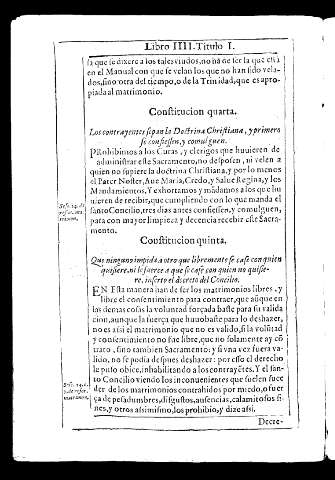 Libro IIII. Titulo I.
sa que se dixere a los tales viudos, no ha de ser la que està
en el Manual con que se velan los que no han sido vela-
dos, sino otra del tiempo, o de la Trinidad, que es apro-
piada al matrimonio.
Constitucion quarta.
Los contrayentes sepan la Doctrina Christiana, y primero
se confiessen, y comulguen.
PRohibimos a los Curas, y clerigos que huuieren de
administrar este Sacramento, no desposen, ni velen a
quien no supiere la doctrina Christiana, y por lo menos
el Pater Noster, Aue Maria, Credo, y Salue Regina, y los
Mandamientos, Y exhortamos y mãdamos a los que hu
uieren de recibir, que cumpliendo con lo que manda el
santo Concilio, tres dias antes confiessen, y comulguen,
para con mayor limpieza y decencia recebir este Sacra-
mento.
Constitucion quinta.
Que ninguno impida a otro que libremente se case con quien
quisiere, ni le fuerce a que se case con quien no quisie-
re, inserto el decreto del Concilio.
EN Esta manera han de ser los matrimonios libres, y
libre el consentimiento para contraer, que aũque en
las demas cosas la voluntad forçada baste para su valida
cion, aunque la fuerça que huuo baste para lo deshazer,
no es assi el matrimonio que no es valido, si la volũtad
y consentimiento no fue libre, que no solamente ay cõ
trato, sino tambien Sacramento: y si vna vez fuera va-
lido, no se podia despues deshazer: por esso el derecho
le puso obice, inhabilitando a los contrayẽtes. Y el san-
to Concilio viendo los inconuenientes que suelen suce
der de los matrimonios contrahidos por miedo, o fuer
ça de pesadumbres, disgustos, ausencias, calamitosos fi-
nes, y otros assimismo, los prohibio, y dize assi.
Decre-